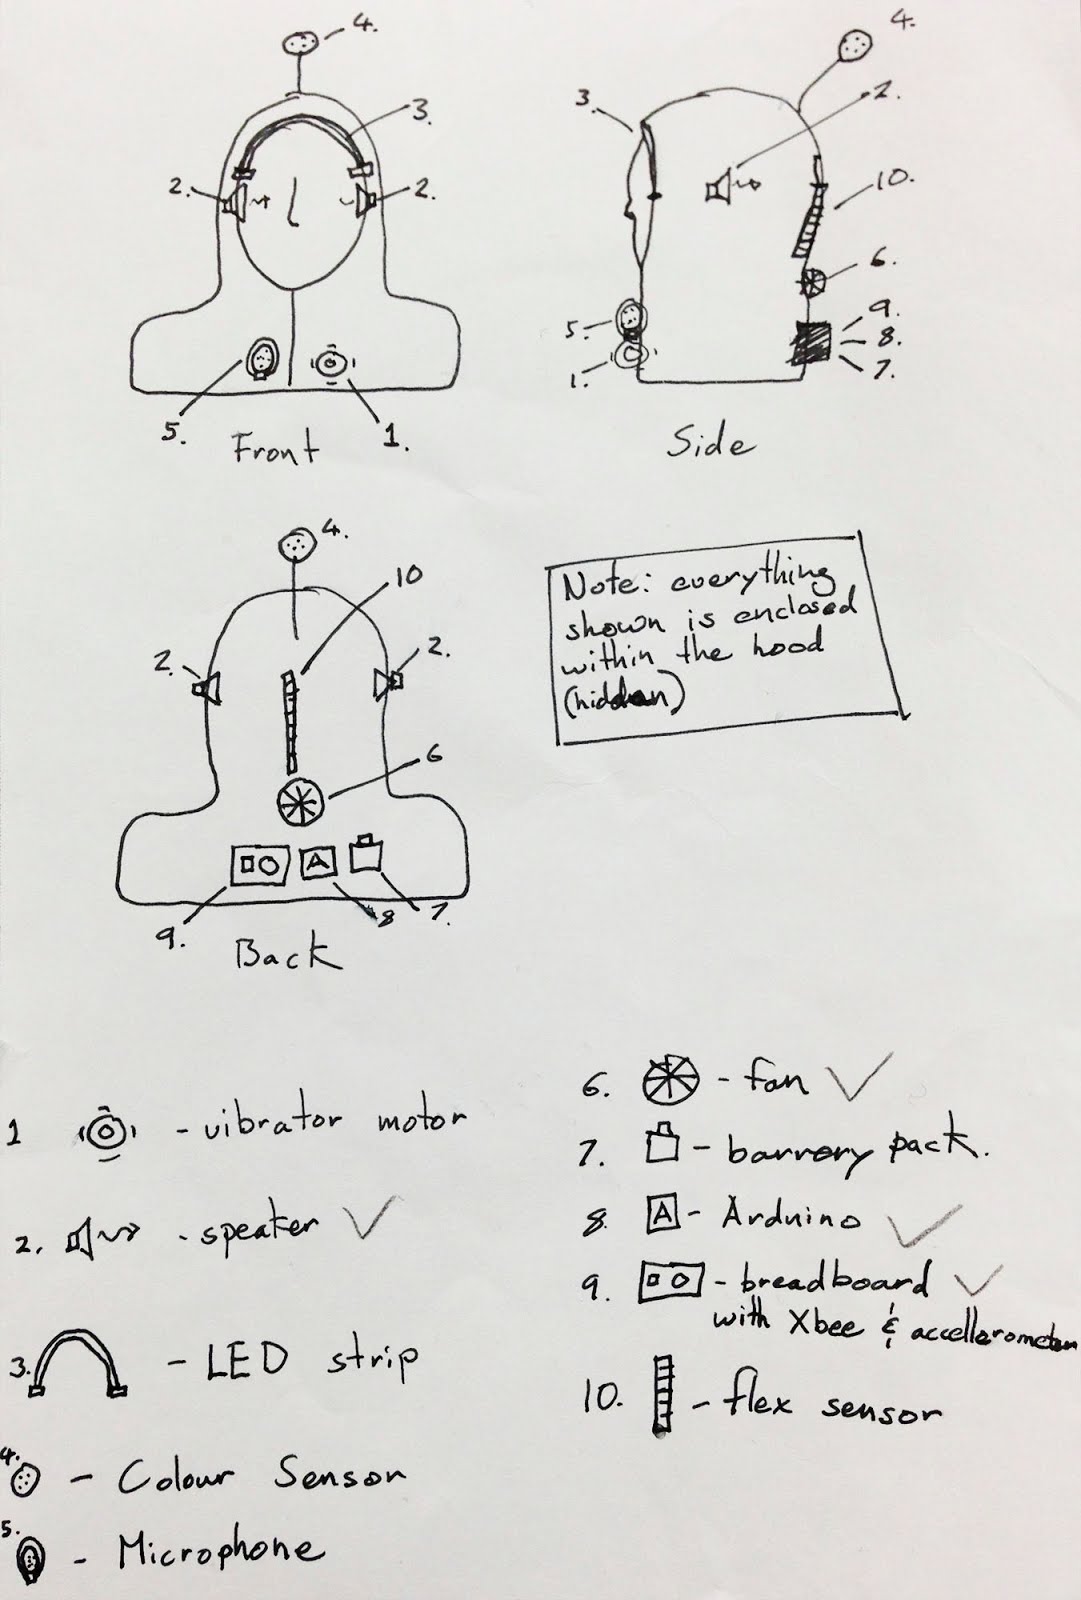 4.
3.
2.
2.
5.
1.
Front
4.
3.
2.
10.
6.
5.
9.
8.
1.
7.
Side
4.
10
2.
2.
6
9.
8
7.
Back
Note: everything
shown is enclosed
within the hood
(hidden)
1 - vibrator motor
2. - speaker
3. - LED strip
4. - Colour Sensor
5. - Microphone
6. - fan
7. - barrery pack.
8. A - Arduino
9. - breadboard
with Xbee & accellerometer
10. - flex sensor